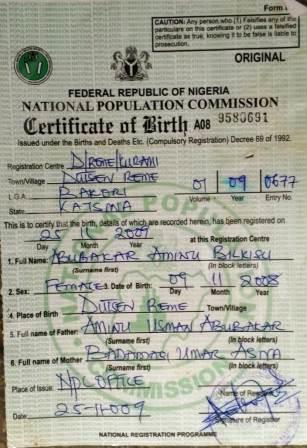 Form
CAUTION: Any person who (1) Falsifies any of the
particulars on this certificate or (2) uses a falsified
certificate as true, knowing it to be false is liable to
prosecution.
ORIGINAL
FEDERAL REPUBLIC OF NIGERIA
NATIONAL POPULATION COMMISSION
Certificate of Birth A08 9580691
Issued under the Births and Deaths Etc. (Compulsory Registration) Decree 69 of 1992.
Registration Centre D/REME/KURAMI
Town/Village DUTSEN REME 01 09 0677
L.G.A. BAKORI Volume Year Entry No.
State KATSINA
This is to certify that the birth, details of which are recorded herein, has been registered on
25 11 2009 at this Registration Centre
Day Month Year
1. Full Name: ABUBAKAR AMINU BILKISU
(Surname first) (In block letters)
2. Sex: FEMALE 3. Date of Birth: 09 11 2008
Day Month Year
4. Place of Birth DUTSEN REME Town/Village
5. Full name of Father: AMINU USMAN ABUBAKAR
(Surname first) (In block letters)
6. Full name of Mother BADAMASI UMAR ASMA
(Surname first) (In block letters)
Place of Issue: NPC OFFICE
Name of Registrar
Date: 25-11-009
Signature of Registrar
NATIONAL REGISTRATION PROGRAMME